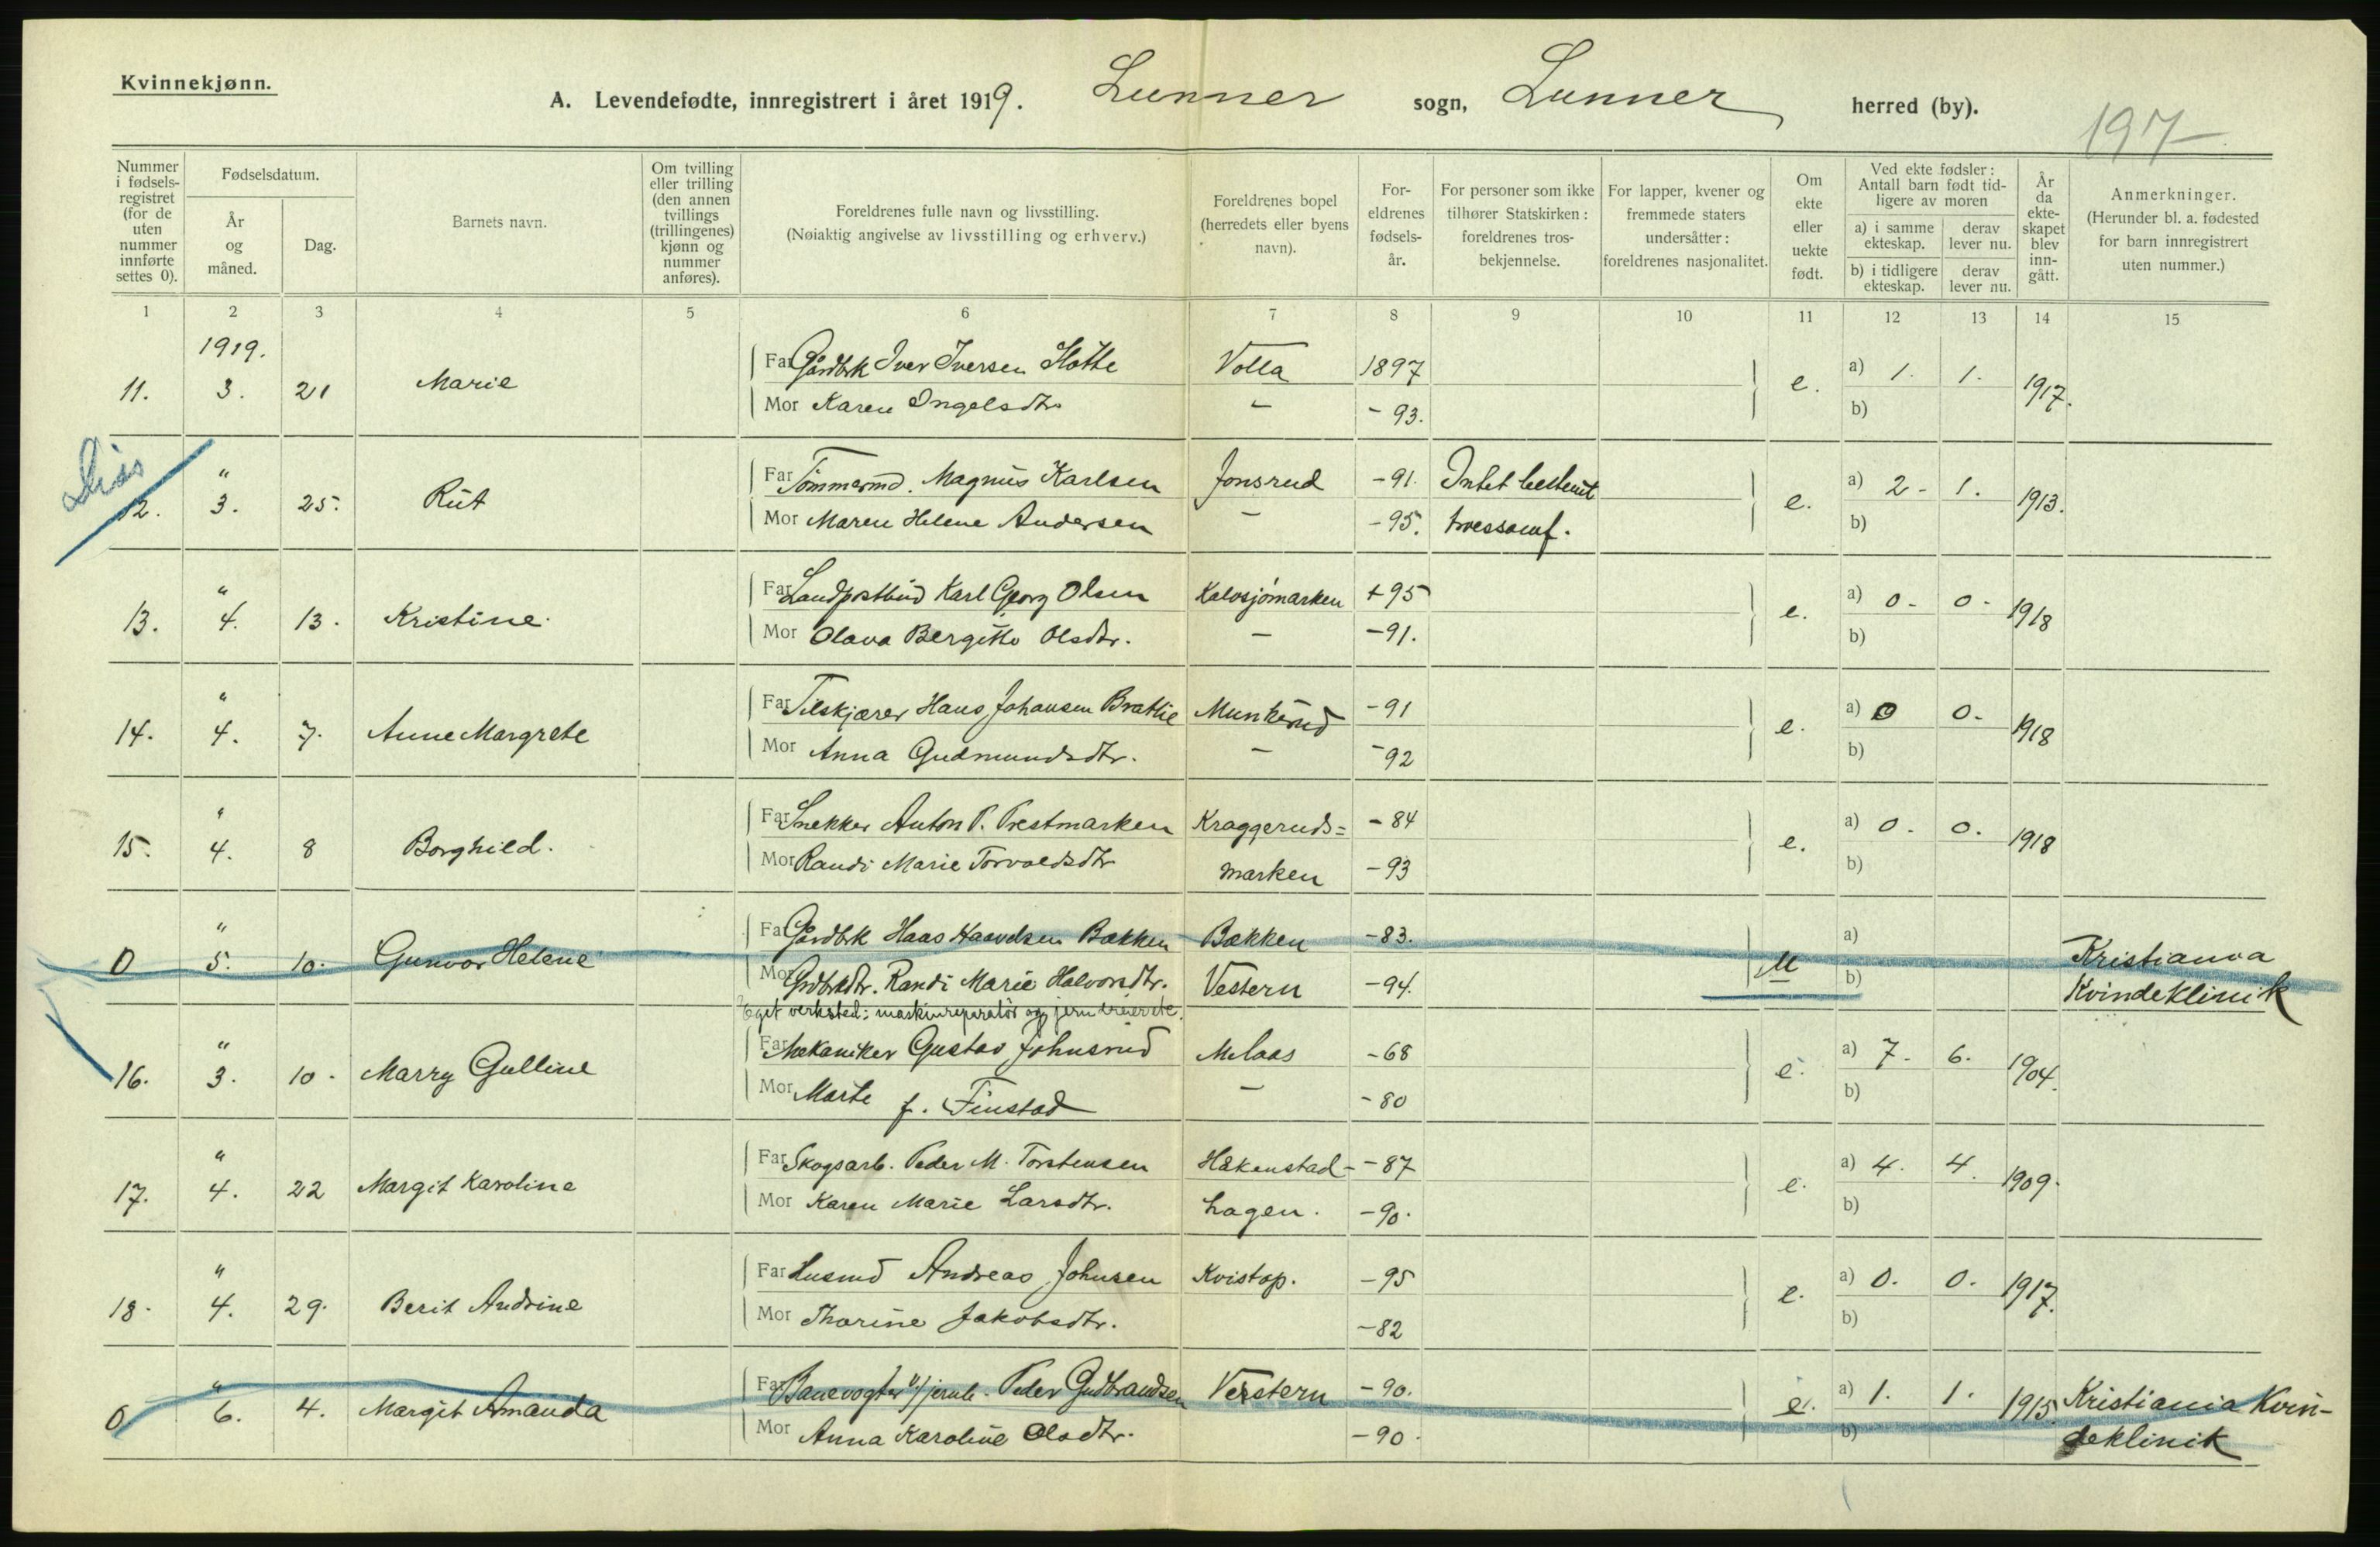 Kvinnekjønn.
A. Levendefødte, innregistrert i året 1919. Lunner sogn, Lunner herred (by).
197
Nummer i fødsels-registret (for de uten nummer innførte settes 0).
Fødselsdatum.
År og måned.
Dag.
Barnets navn.
Om tvilling eller trilling (den annen tvillings (trillingenes) kjønn og nummer anføres).
Foreldrenes fulle navn og livsstilling.
(Nøiaktig angivelse av livsstilling og erhverv.)
Foreldrenes bopel (herredets eller byens navn).
For-eldrenes fødsels-år.
For personer som ikke tilhører Statskirken: foreldrenes tros-bekjennelse.
For lapper, kvener og fremmede staters undersåtter: foreldrenes nasjonalitet.
Om ekte eller uekte født.
Ved ekte fødsler: Antall barn født tid-ligere av moren
a) i samme ekteskap.
derav lever nu.
b) i tidligere ekteskap.
derav lever nu.
År da ekte-skapet blev inn-gått.
Anmerkninger.
(Herunder bl. a. fødested for barn innregistrert uten nummer.)
1 2 3 4 5 6 7 8 9 10 11 12 13 14 15
1919.
11. 3. 21 Marie Far Gårdbrk Iver Iversen Slotte Volla 1897 e. a) 1. 1. 1917.
Mor Karen Ingelsdtr. – – 93. b)
Diss
12. " 3. 25. Rut Far Tømmermd. Magnus Karlsen Jonsrud – 91. Intet bestemt e. a) 2 - 1. 1913.
Mor Maren Helene Andersen – – 95. troessamf. b)
13. " 4. 13. Kristine. Far Landpostbud Karl Georg Olsen Kalvsjømarken + 95 e. a) 0 - 0 - 1918
Mor Olava Bergitte Olsdtr. – – 91. b)
14. " 4. 7. Anne Margrete Far Tilskjærer Hans Johansen Bratlie Munkerud – 91 e. a) 0 0. 1918
Mor Anna Gudmundsdtr. – – 92 b)
15. " 4. 8 Borghild. Far Snekker Anton P. Prestmarken Kraggeruds= – 84 e. a) 0. 0. 1918
Mor Randi Marie Torvaldsdtr marken – 93 b)
0 " 5. 10. Gunvor Helene Far Gårdbrk Hans Haavelsen Bakken Bakken – 83. U a) Kristiania
Mor Grdbrkdtr. Randi Marie Halvorsdtr. Vestern – 94. b) Kvindeklinik
Eget verksted: maskinreparatør og jerndreierete.
16. " 3. 10. Marry Gulline Far Mekaniker Gustav Johnsrud Melaas – 68 e. a) 7. 6. 1904.
Mor Marte f. Finstad – – 80 b)
17. " 4. 22 Margit Karoline Far Skogsarb. Peder M. Torstensen Håkenstad- – 87 e. a) 4. 4. 1909.
Mor Karen Marie Larsdtr. hagen. – 90. b)
18. " 4. 29. Berit Andrine Far Husmd Andreas Johnsen Kvistop. – 95 e. a) 0. 0. 1917.
Mor Thorine Jakobsdtr. – 82 b)
0 " 6. 4. Margit Amanda Far Banevogter v/jernb. Peder Gudbrandsen Verstern – 90. e. a) 1. 1. 1915. Kristiania Kvin-
Mor Anna Karoline Olsdtr. – 90. b) deklinik